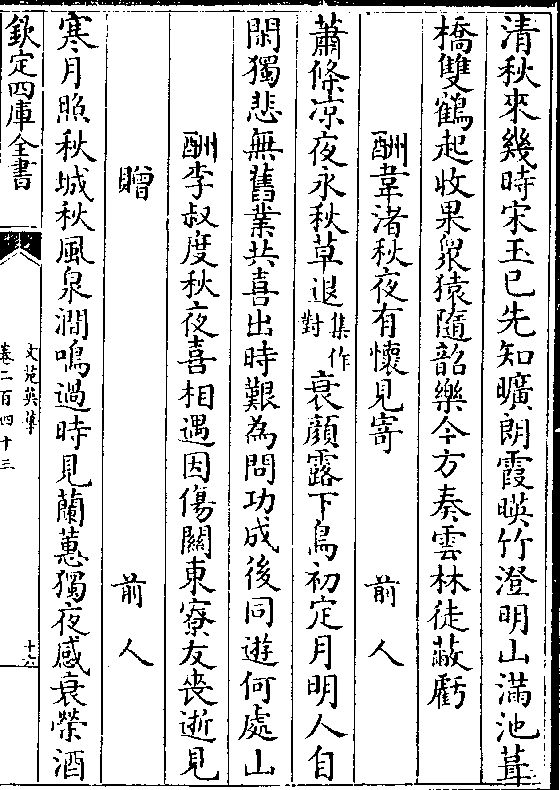 清秋來幾時宋玉已先知曠朗霞暎竹澄明山滿池葺
橋雙鶴起收果衆猿隨韶樂今方奏雲林徒蔽虧
酬韋渚秋夜有懷見寄 前人
蕭條凉夜永秋草退集作對衰顔露下鳥初定月明人自
閑獨悲無舊業共喜出時艱為問功成後同遊何處山
酬李叔度秋夜喜相遇因傷關東寮友喪逝見
贈 前人
寒月照秋城秋風泉澗鳴過時見蘭蕙獨夜感衰榮酒
欽定四庫全書
文苑英華
卷二百四十三
十六